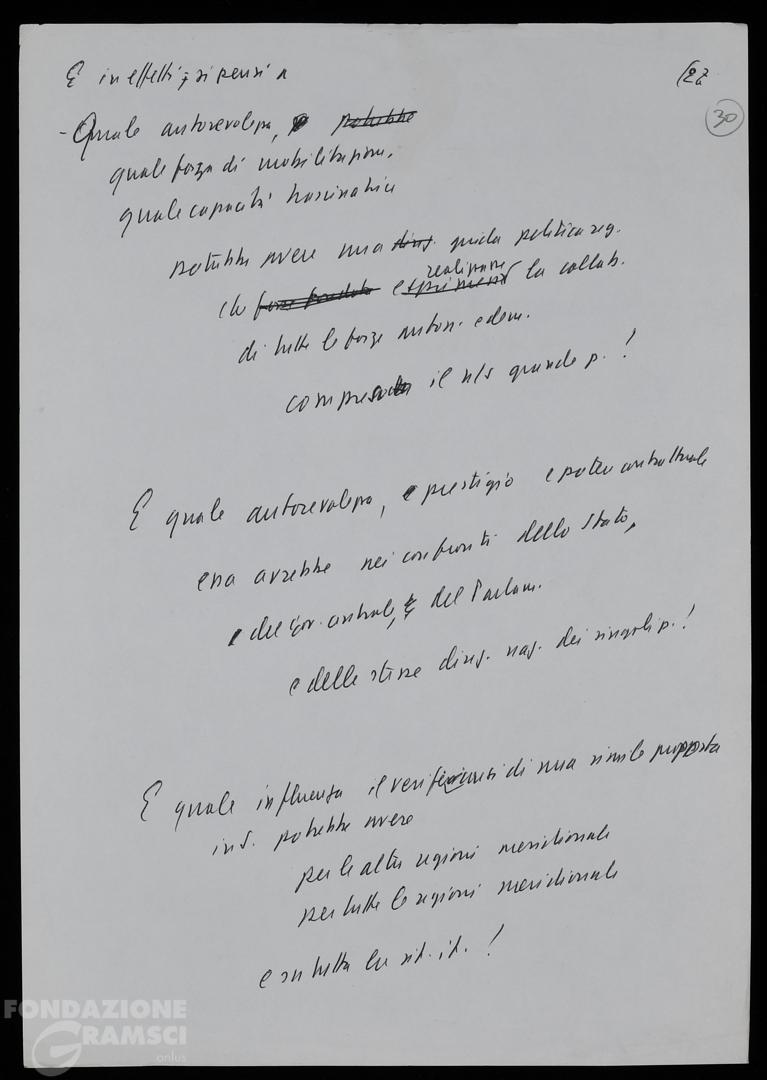 E in effetti, si pensi a
27
30
- Quale autorevolezza, e potrebbe
quale forza di mobilitazione,
quale capacità trascinatrice
potrebbe avere una dirig. guida politica reg.
che realizzasse
esprimesse la collab.
di tutte le forze auton. e dem.
compreso il n/s grande p. !
E quale autorevolezza, e prestigio e potere contrattuale
essa avrebbe nei confronti dello Stato,
e del Gov. centrale, e del Parlam.
e delle stesse dirig. naz. dei singoli p. !
E quale influenza il verificarsi di una simile proposta
in S. potrebbe avere
per le altre regioni meridionali
per tutte le regioni meridionali
e su tutta la sit. it. !
FONDAZIONE
GRAMSCI
onlus